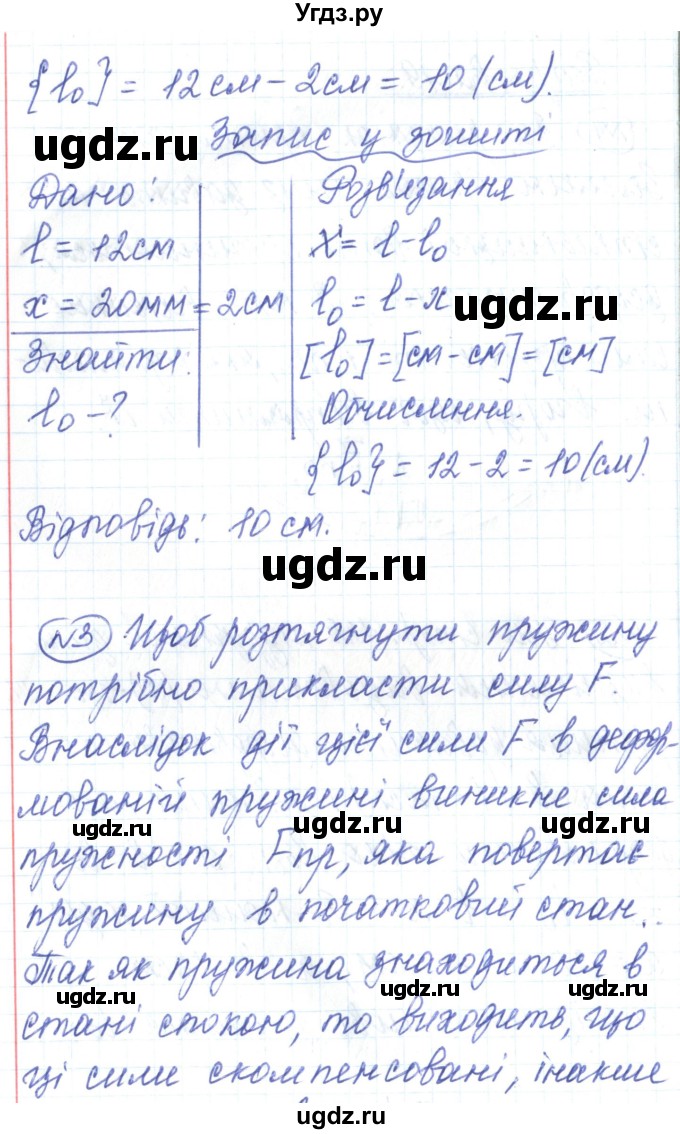 Угдз.ру
{l₀} = 12см - 2см = 10 (см).
Запис у зошиті
Дано: Розв'язання
l = 12см x = l - l₀
x = 20мм = 2см l₀ = l - x
Знайти: [l₀] = [см - см] = [см]
l₀ - ? Обчислення.
{l₀} = 12 - 2 = 10 (см).
Відповідь: 10 см.
№3 Щоб розтягнути пружину
потрібно прикласти силу F.
Внаслідок дії цієї сили F в дефор-
мованій пружині виникне сила
пружності Fпр, яка повертає
пружину в початковий стан.
Так як пружина знаходиться в
стані спокою, то виходить, що
ці сили скомпенсовані, інакше
ugdz.ru
ugdz.ru
ugdz.ru
ugdz.ru
ugdz.ru
ugdz.ru
ugdz.ru
ugdz.ru
ugdz.ru
ugdz.ru
ugdz.ru
ugdz.ru